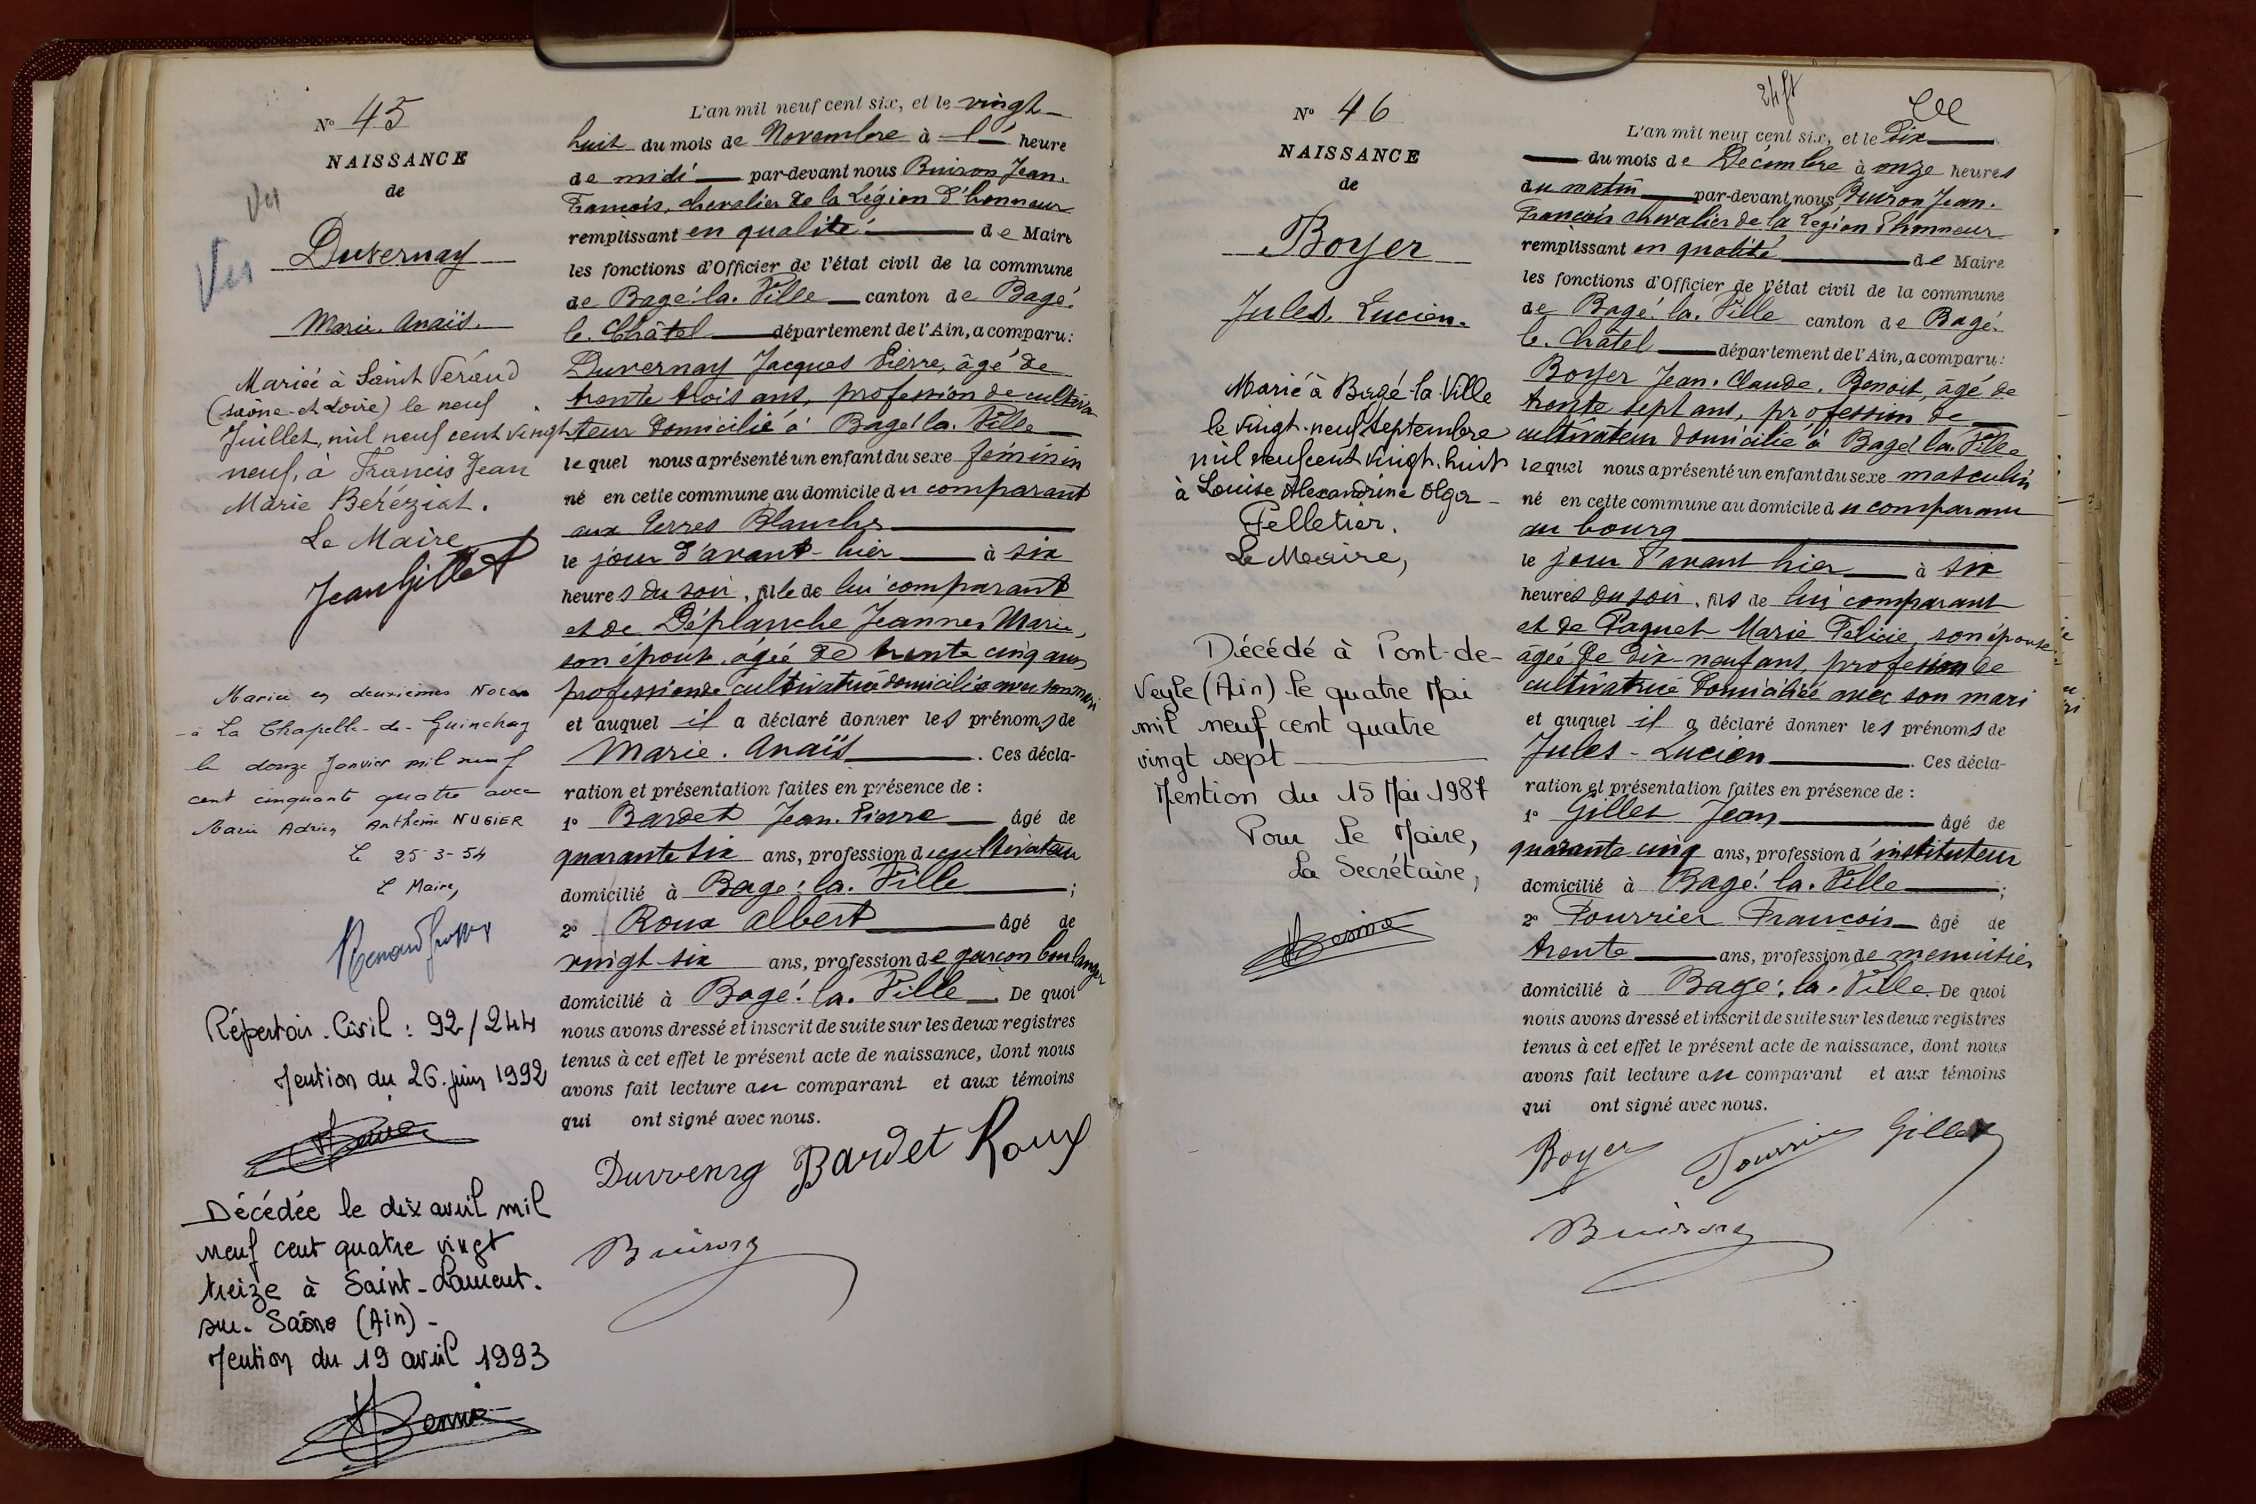 N° 45
NAISSANCE
de
Vu
Vu
Duvernay
Marie. Anaïs.
Mariée à Saint Vérand
(Saône-et-Loire) le neuf
Juillet, mil neuf cent vingt
neuf, à Francis Jean
Marie Beréziat.
Le Maire
Jean Gillet
Mariée en deuxièmes Noces
à La Chapelle-de-Guinchay
le douze Janvier mil neuf
cent cinquante quatre avec
Marie Adrien Anthelme NUGIER
Le 25-3-54
Le Maire,
Répertoire Civil : 92/244
Mention du 26 juin 1992
Décédée le dix avril mil
neuf cent quatre vingt
treize à Saint-Laurent-
sur-Saône (Ain) -
Mention du 19 avril 1993
L'an mil neuf cent six, et le vingt
huit du mois de Novembre à l' heure
de midi par-devant nous Buiron Jean.
François, chevalier de la Légion d'honneur
remplissant en qualité de Maire
les fonctions d'Officier de l'état civil de la commune
de Bagé. la. Ville canton de Bagé.
le. Châtel département de l'Ain, a comparu :
Duvernay Jacques Pierre, âgé de
trente trois ans, profession de cultiva
teur domicilié à Bagé la. Ville
lequel nous a présenté un enfant du sexe féminin
né en cette commune au domicile du comparant
aux Terres Blanches
le jour d'avant-hier à six
heures du soir, fille de lui comparant
et de Déplanche Jeanne Marie,
son épouse, âgée de trente cinq ans
profession de cultivatrice domiciliée avec son mari
et auquel il a déclaré donner les prénoms de
Marie. Anaïs . Ces décla-
ration et présentation faites en présence de :
1° Bardet Jean. Pierre âgé de
quarante six ans, profession de cultivateur
domicilié à Bagé. la. Ville ;
2° Roux Albert âgé de
vingt six ans, profession de garçon boulanger
domicilié à Bagé. la. Ville . De quoi
nous avons dressé et inscrit de suite sur les deux registres
tenus à cet effet le présent acte de naissance, dont nous
avons fait lecture au comparant et aux témoins
qui ont signé avec nous.
Bardet Roux
Buiron
24 ft
N° 46
NAISSANCE
de
Boyer
Jules, Lucien.
Marié à Bagé-la-Ville
le vingt-neuf septembre
mil neuf cent vingt-huit
à Louise Alexandrine Olga
Pelletier.
Le Maire,
Décédé à Pont-de-
Veyle (Ain) le quatre Mai
mil neuf cent quatre
vingt sept
Mention du 15 Mai 1987
Pour le Maire,
La Secrétaire,
L'an mil neuf cent six, et le Dix
du mois de Décembre à onze heures
du matin par-devant nous Buiron Jean.
François chevalier de la Légion d'honneur
remplissant en qualité de Maire
les fonctions d'Officier de l'état civil de la commune
de Bagé. la. Ville canton de Bagé.
le. Châtel département de l'Ain, a comparu :
Boyer Jean. Claude. Benoit, âgé de
trente sept ans, profession de
cultivateur domicilié à Bagé la. Ville
lequel nous a présenté un enfant du sexe masculin
né en cette commune au domicile du comparant
au bourg
le jour d'avant hier à six
heures du soir, fils de lui comparant
et de Paquet Marie Félicie, son épouse
âgée de dix-neuf ans, profession de
cultivatrice domiciliée avec son mari
et auquel il a déclaré donner les prénoms de
Jules - Lucien . Ces décla-
ration et présentation faites en présence de :
1° Gillet Jean âgé de
quarante cinq ans, profession d'instituteur
domicilié à Bagé. la. Ville ;
2° Fourrier François âgé de
trente ans, profession de menuisier
domicilié à Bagé. la. Ville. De quoi
nous avons dressé et inscrit de suite sur les deux registres
tenus à cet effet le présent acte de naissance, dont nous
avons fait lecture au comparant et aux témoins
qui ont signé avec nous.
Boyer Fourrier Gillet
Buiron